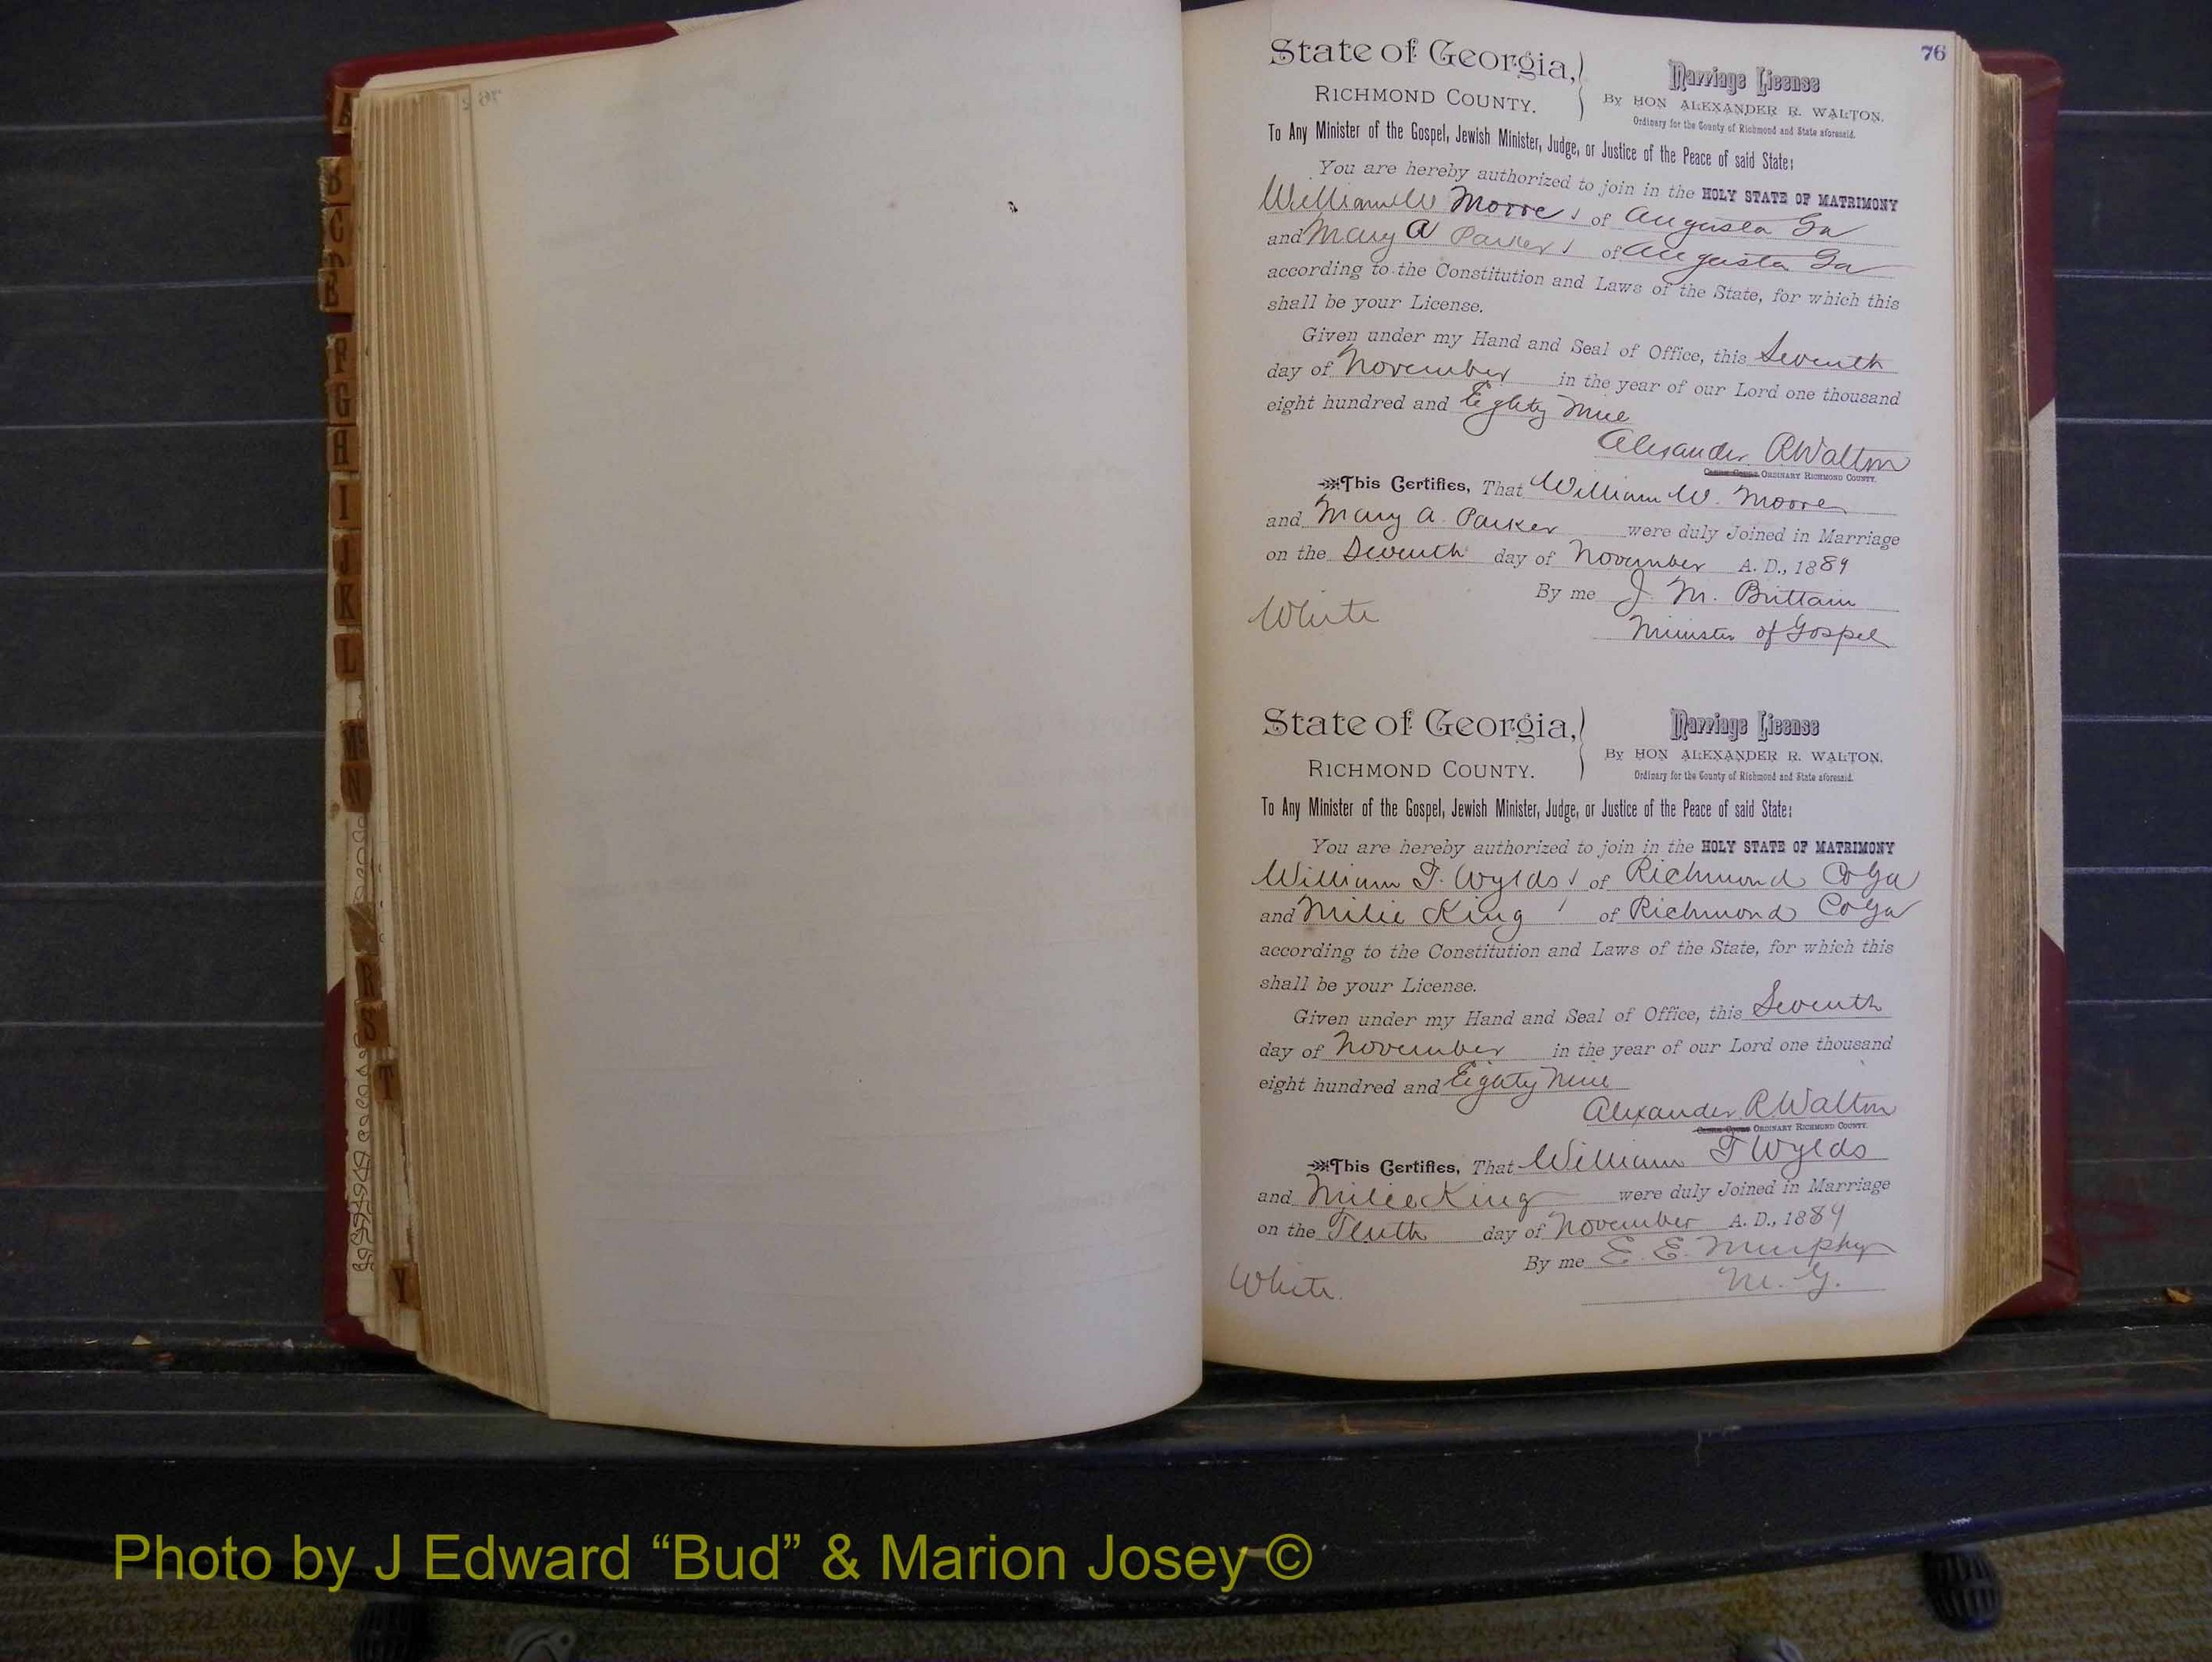 76
State of Georgia,
RICHMOND COUNTY.
Marriage License
By HON ALEXANDER R. WALTON.
Ordinary for the County of Richmond and State aforesaid.
To Any Minister of the Gospel, Jewish Minister, Judge, or Justice of the Peace of said State:
You are hereby authorized to join in the HOLY STATE OF MATRIMONY
William W Moore of Augusta Ga
and Mary A Parker of Augusta Ga
according to the Constitution and Laws of the State, for which this
shall be your License.
Given under my Hand and Seal of Office, this Seventh
day of November in the year of our Lord one thousand
eight hundred and Eighty Nine
Alexander R Walton
ORDINARY RICHMOND COUNTY.
This Certifies, That William W. Moore
and Mary A. Parker were duly Joined in Marriage
on the Seventh day of November A. D., 1889
By me J. M. Brittain
White
Minister of Gospel
State of Georgia,
RICHMOND COUNTY.
Marriage License
By HON ALEXANDER R. WALTON.
Ordinary for the County of Richmond and State aforesaid.
To Any Minister of the Gospel, Jewish Minister, Judge, or Justice of the Peace of said State:
You are hereby authorized to join in the HOLY STATE OF MATRIMONY
William T. Wylds of Richmond Co Ga
and Milie King of Richmond Co Ga
according to the Constitution and Laws of the State, for which this
shall be your License.
Given under my Hand and Seal of Office, this Seventh
day of November in the year of our Lord one thousand
eight hundred and Eighty Nine
Alexander R Walton
ORDINARY RICHMOND COUNTY.
This Certifies, That William T Wylds
and Milie King were duly Joined in Marriage
on the Tenth day of November A. D., 1889
By me E. E. Murphy
White.
M. G.
G
H
I
J
K
L
N
R
S
T
Y
Photo by J Edward “Bud” & Marion Josey ©